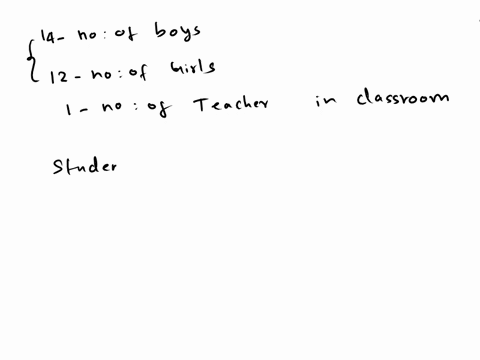 14- no: of boys
12- no: of Girls
1 - no: of Teacher in classroom
Studer